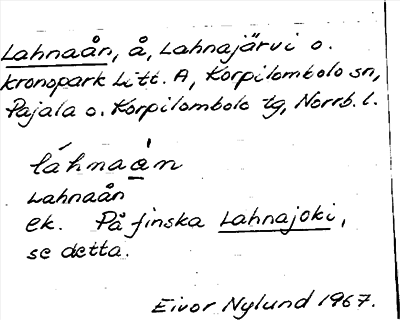 Lahnaån, å, Lahnajärvi o.
kronopark Litt. A, Korpilombolo sn,
Pajala o. Korpilombolo tg, Norrb. l.
láhnaa̱n
Lahnaån
ek. På finska Lahnajoki,
se detta.
Eivor Nylund 1967.